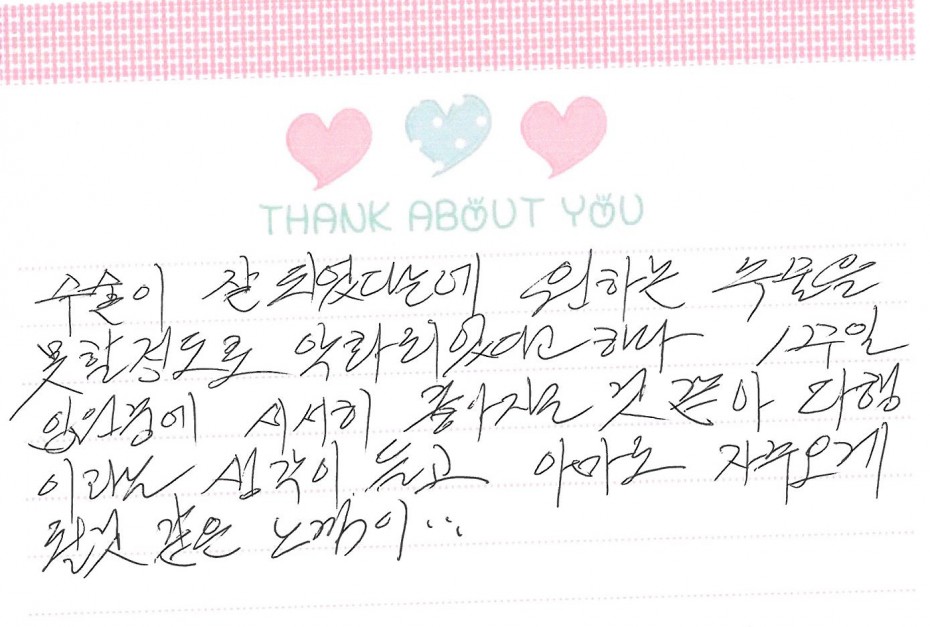 THANK ABOUT YOU
수술이 잘 되었다는데 원하는
못할정도로 악화되었다고 하다 1주일
입원중에 서서히 좋아지는 것 같아 다행
이라는 생각이 들고 아마도 자주오게
될것 같은 느낌이..